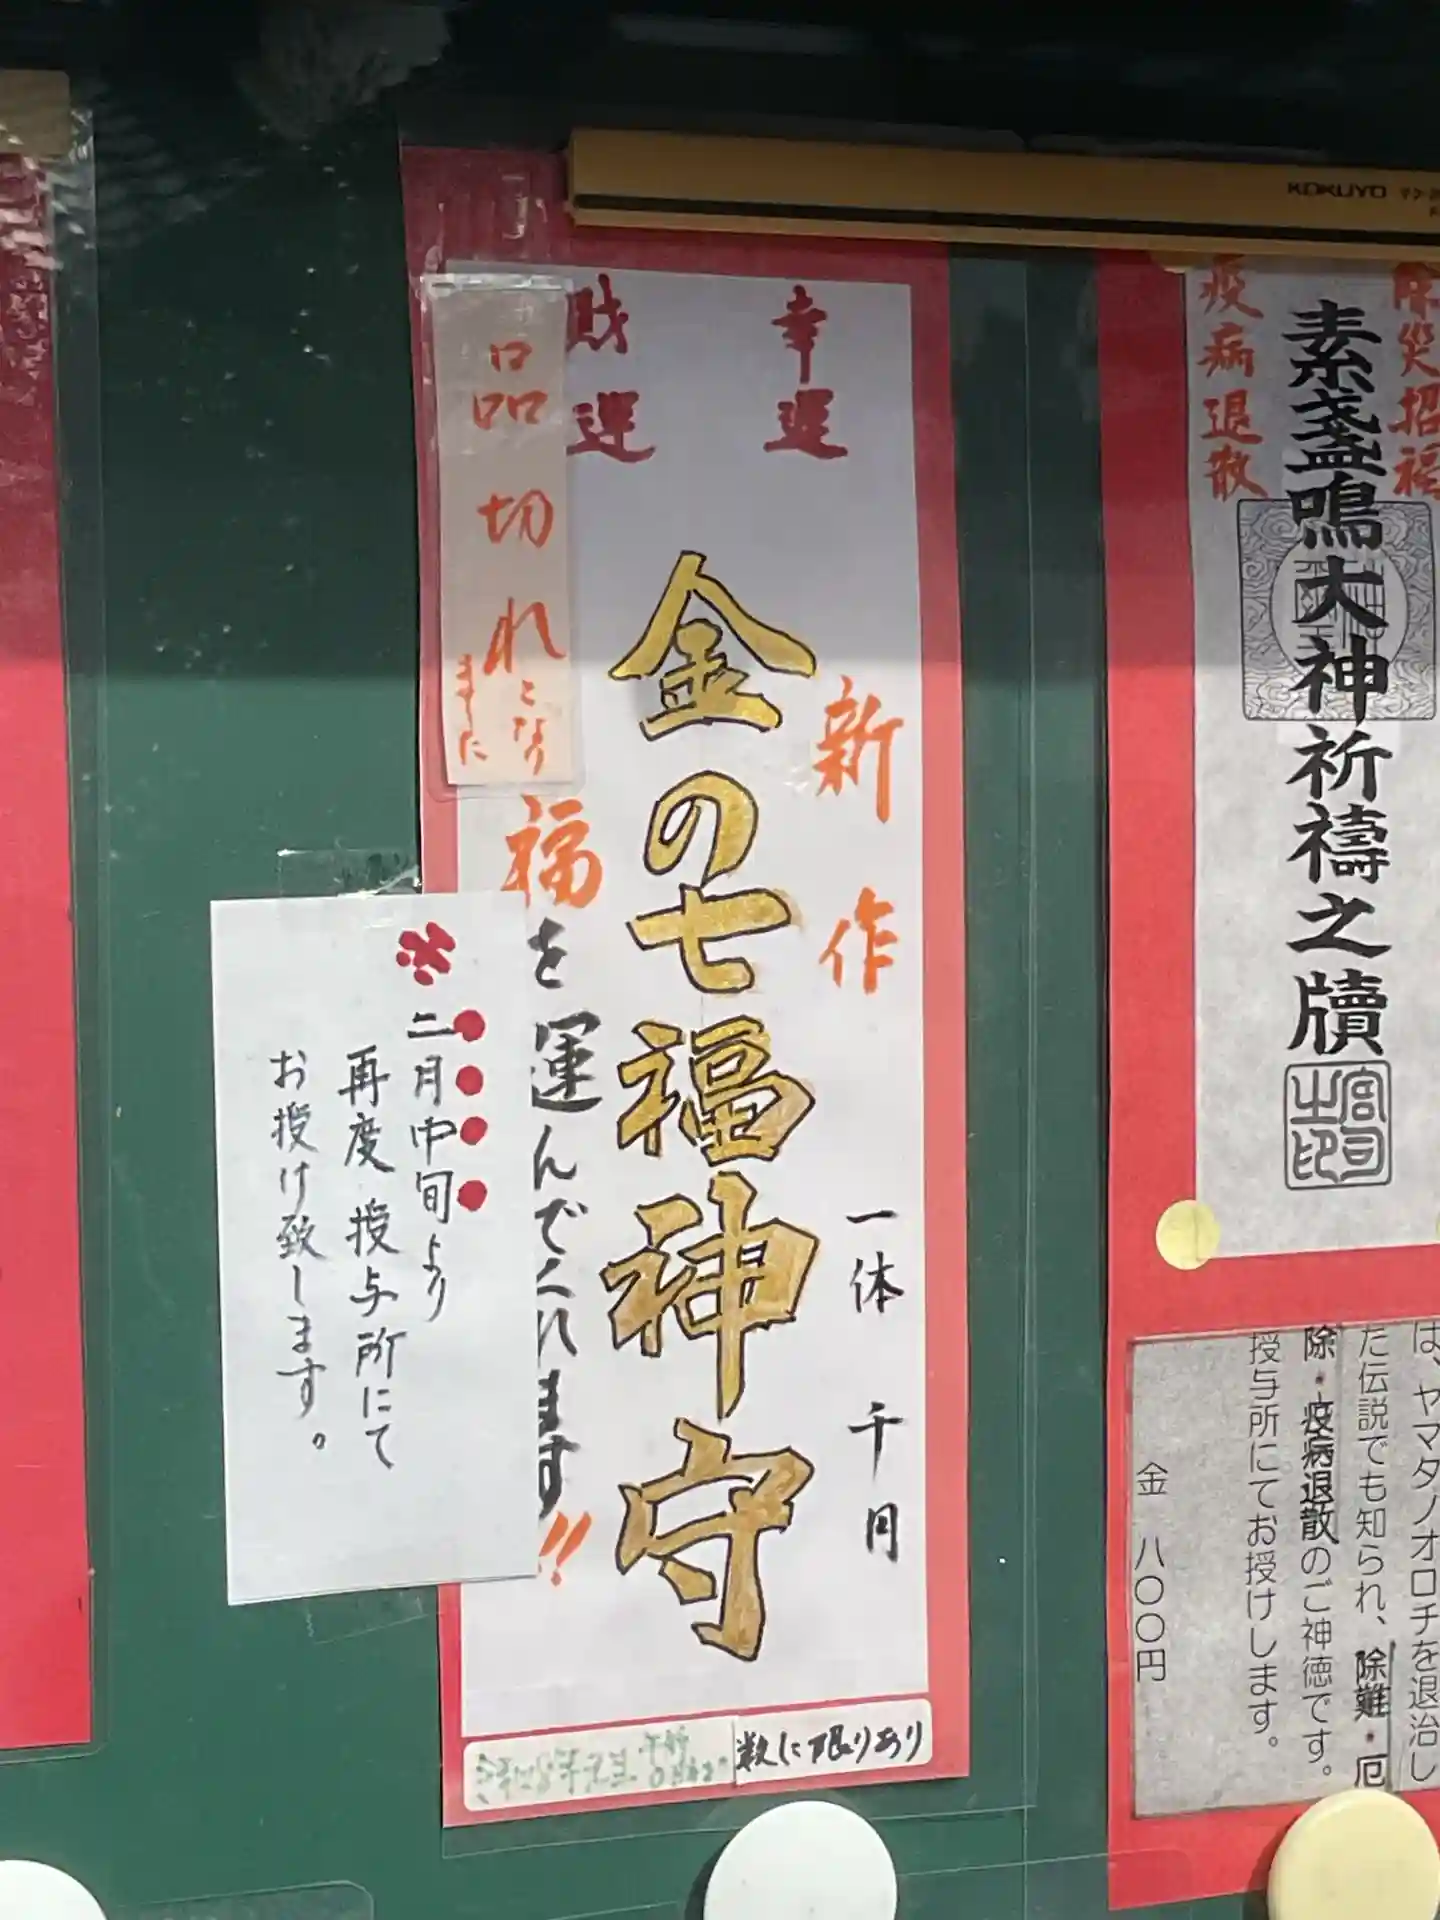 KOKUYO
除災招福
素盞鳴大神祈禱之牘
疫病退散
宮司之印
は、ヤマタノオロチを退治し
た伝説でも知られ、除難・厄
除・疫病退散のご神徳です。
授与所にてお授けします。
金 八〇〇円
幸運
財運
新作
金の七福神守
一体 千円
福を運んでくれます!!
品切れとなり
ました
※二月中旬より
再度授与所にて
お授け致します。
数に限りあり